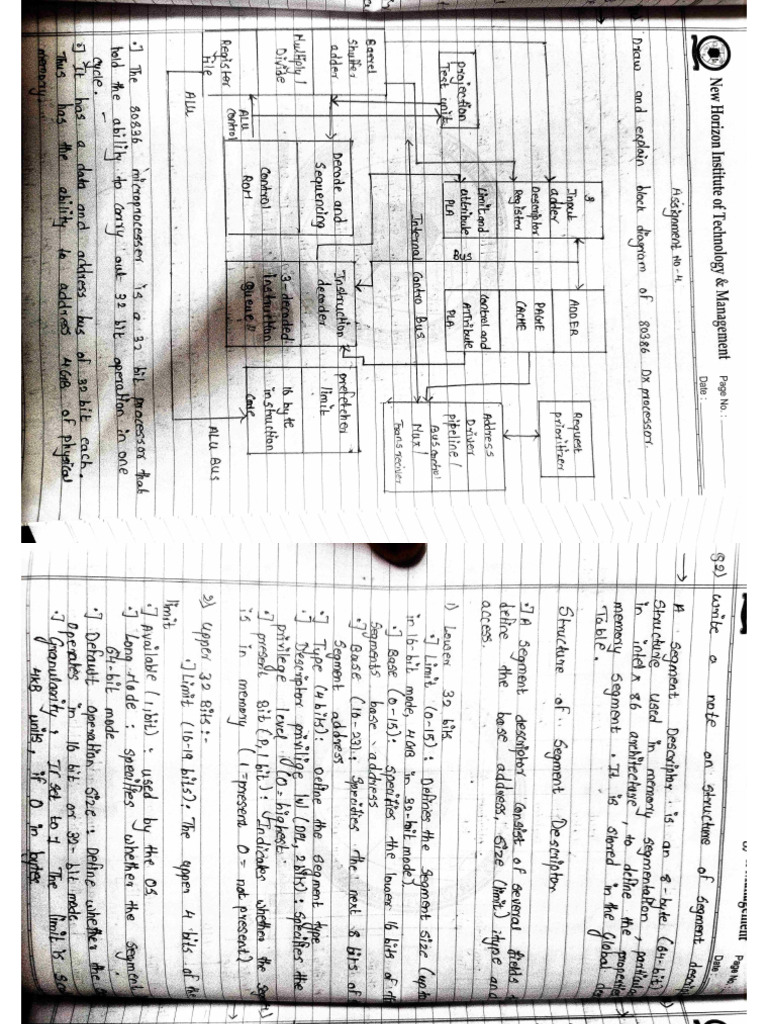 New Horizon Institute of Technology & Management
Page No. :
Date :
Assignment No-4
Draw and explain block diagram of 80386 Dx processor.
3
Input
adder
Descriptor
Register
Limit and
attribute
PLA
ADDER
PAGHE
CACHE
Control and
Attribute
PLA
Request
prioritizer
Address
Driver
pipeline /
Bus control
Mux /
Trans reciver
projection
Test unit
Internal Contro Bus
Bus
Barrel
Shutter
adder
Multiply /
Divide
Register
File
ALU
control
Decode and
Sequencing
Control
Rom
Instruction
decoder
3-decoded
Instruction
Queue
prefetcher
limit
16 byte
instruction
Code
ALU
ALU BUS
•] The 80836 microprocesser is a 32 bit processor that
hold the ability to carry out 32 bit operation in one
cycle.
•] It has a data and address bus of 32 bit each.
Thus has the ability to address 4GB of physical
memory.
Management
Page No.
Date
Q2) Write a note on structure of segment descrip
→ A Segment Descriptor is an 8-byte (64-bit)
Structure used in memory segmentation, particular
in intel x 86 architecture, to define the properties
memory segment. It is stored in the Global de
Table.
Structure of Segment Descriptor
•] A Segment descriptor consist of several fields
define the base address, size (limit), type and
access.
1) Lower 32 bits
•] Limit (0-15) : Defines the Segment size (upto
in 16-bit mode, 4GB in 32-bit mode)
•] Base (0-15) : Specifies the lower 16 bits of the
Segments base address
•] Base (16-23) : Specifies the next 8 bits of
Segment address
•] Type (4 bits) : Define the segment type
•] Descriptor privilige lvl (DPL, 2 bits) : Specifies the
privilege level (0 = highest.
•] present Bit (P, 1 bit) : Indicates whether the segment
is in memory (1 = present 0 = not present)
2) Upper 32 Bits :-
•] Limit (16-19 bits) : The upper 4 bits of the
limit
•] Available (1, bit) : used by the OS
•] Long Mode : Specifies whether the segment
64-bit mode
•] Default Operation Size : Define whether the
Operates in 16 bit or 32-bit mode.
•] Granularity : If set to 1 The limit is
4KB units, if 0 in bytes